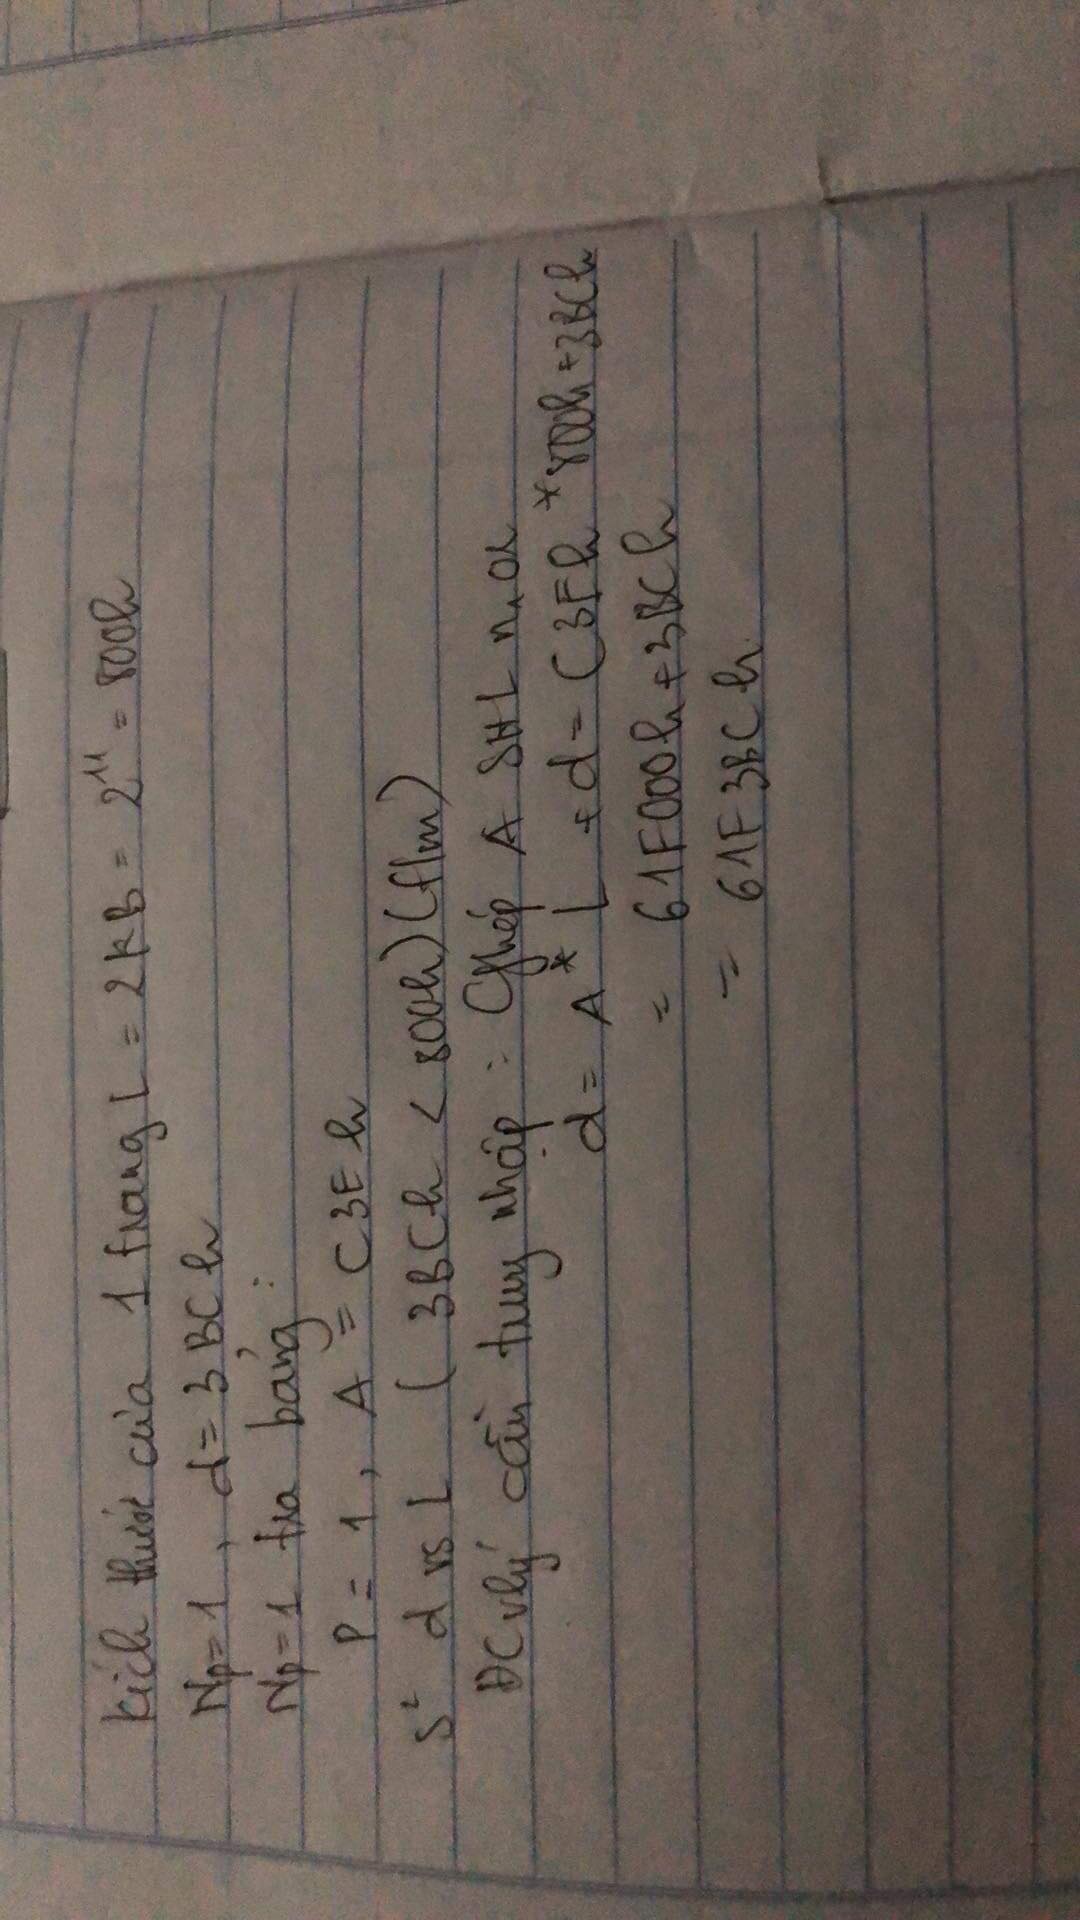 Kích thước của 1 trang L = 2KB = 2¹¹ = 800h
Np=1, d= 3BCh
Np=1 tra bảng:
P = 1, A = C3Eh
S² d vs L (3BCh < 800h) (t/m)
ĐC vlý cần truy nhập: Ghép A
d = A * L + d = C3Eh * 800h + 3BCh
= 61F000h + 3BCh
= 61F3BCh